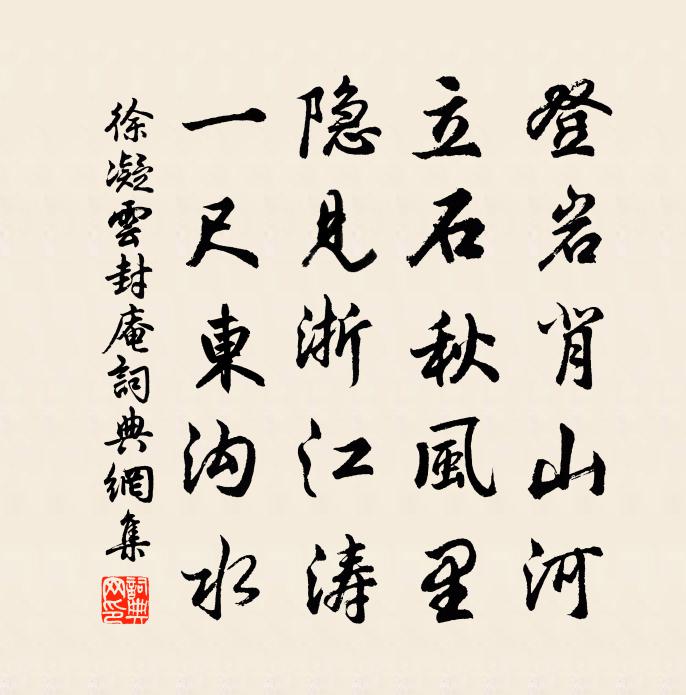 登岩肖山河
立石秋風里
隐見浙江涛
一尺東沟水
徐凝雲封庵詞典網集
詞典網印